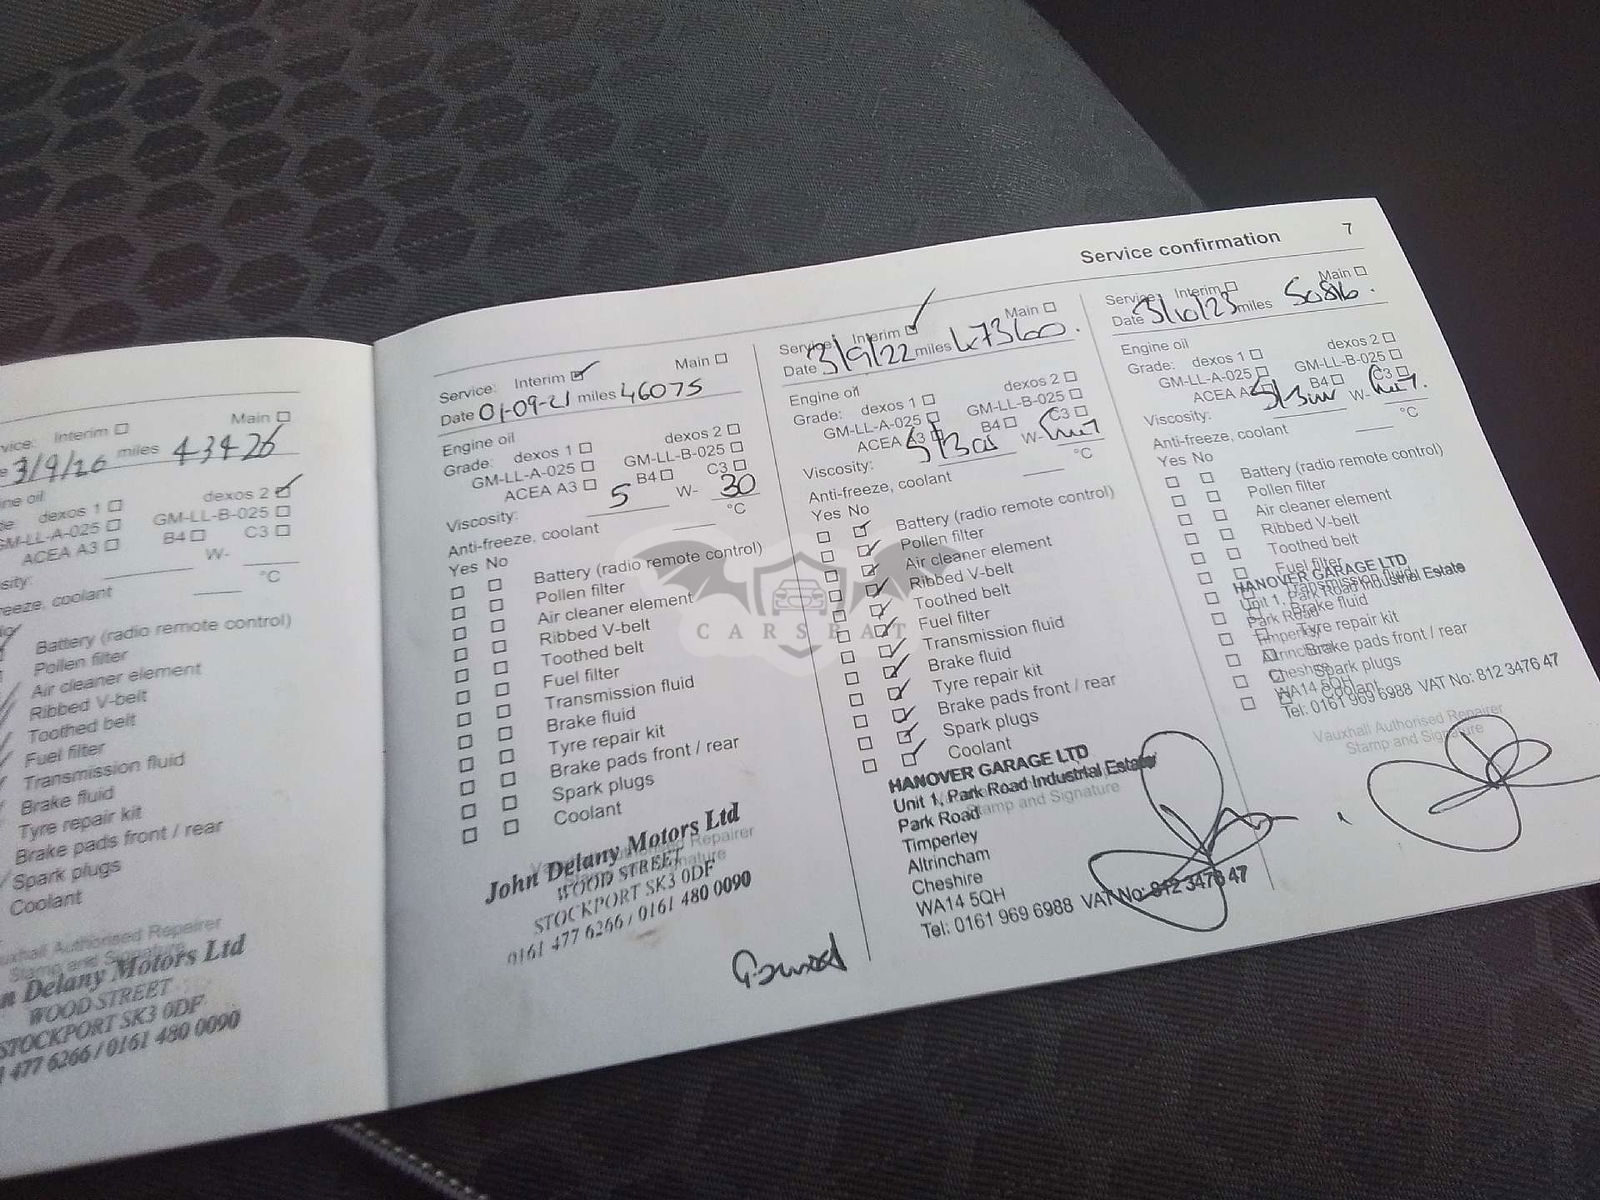 Service confirmation 7
vice: Interim Main
3/9/20 miles 43426
ine oil
de: dexos 1 dexos 2
GM-LL-A-025 GM-LL-B-025
ACEA A3 B4 C3
sity: W-
reeze, coolant °C
Battery (radio remote control)
Pollen filter
Air cleaner element
Ribbed V-belt
Toothed belt
Fuel filter
Transmission fluid
Brake fluid
Tyre repair kit
Brake pads front / rear
Spark plugs
Coolant
auxhall Authorised Repairer
Stamp and Signature
n Delany Motors Ltd
WOOD STREET
STOCKPORT SK3 0DF
1 477 6266 / 0161 480 0090
Service: Interim Main
Date 01-09-21 miles 46075
Engine oil
Grade: dexos 1 dexos 2
GM-LL-A-025 GM-LL-B-025
ACEA A3 B4 C3
Viscosity: 5 W- 30
Anti-freeze, coolant °C
Yes No
Battery (radio remote control)
Pollen filter
Air cleaner element
Ribbed V-belt
Toothed belt
Fuel filter
Transmission fluid
Brake fluid
Tyre repair kit
Brake pads front / rear
Spark plugs
Coolant
John Delany Motors Ltd
Repairer
WOOD STREET
STOCKPORT SK3 0DF
0161 477 6266 / 0161 480 0090
Service: Interim Main
Date 3/9/22 miles 47360.
Engine oil
Grade: dexos 1 dexos 2
GM-LL-A-025 GM-LL-B-025
ACEA A3 B4 C3
Viscosity: W-
Anti-freeze, coolant °C
Yes No
Battery (radio remote control)
Pollen filter
Air cleaner element
Ribbed V-belt
Toothed belt
Fuel filter
Transmission fluid
Brake fluid
Tyre repair kit
Brake pads front / rear
Spark plugs
Coolant
HANOVER GARAGE LTD
Unit 1, Park Road Industrial Estate
Stamp and Signature
Park Road
Timperley
Altrincham
Cheshire
WA14 5QH
Tel: 0161 969 6988 VAT No: 812 3476 47
Service: Interim Main
Date 3/10/23 miles 50816.
Engine oil
Grade: dexos 1 dexos 2
GM-LL-A-025 GM-LL-B-025
ACEA A3 B4 C3
Viscosity: W-
Anti-freeze, coolant °C
Yes No
Battery (radio remote control)
Pollen filter
Air cleaner element
Ribbed V-belt
Toothed belt
Fuel filter
Transmission fluid
Brake fluid
Tyre repair kit
Brake pads front / rear
Spark plugs
Coolant
HANOVER GARAGE LTD
Unit 1, Park Road Industrial Estate
Park Road
Timperley
Altrincham
Cheshire
WA14 5QH
Tel: 0161 969 6988 VAT No: 812 3476 47
Vauxhall Authorised Repairer
Stamp and Signature
CARSBAT